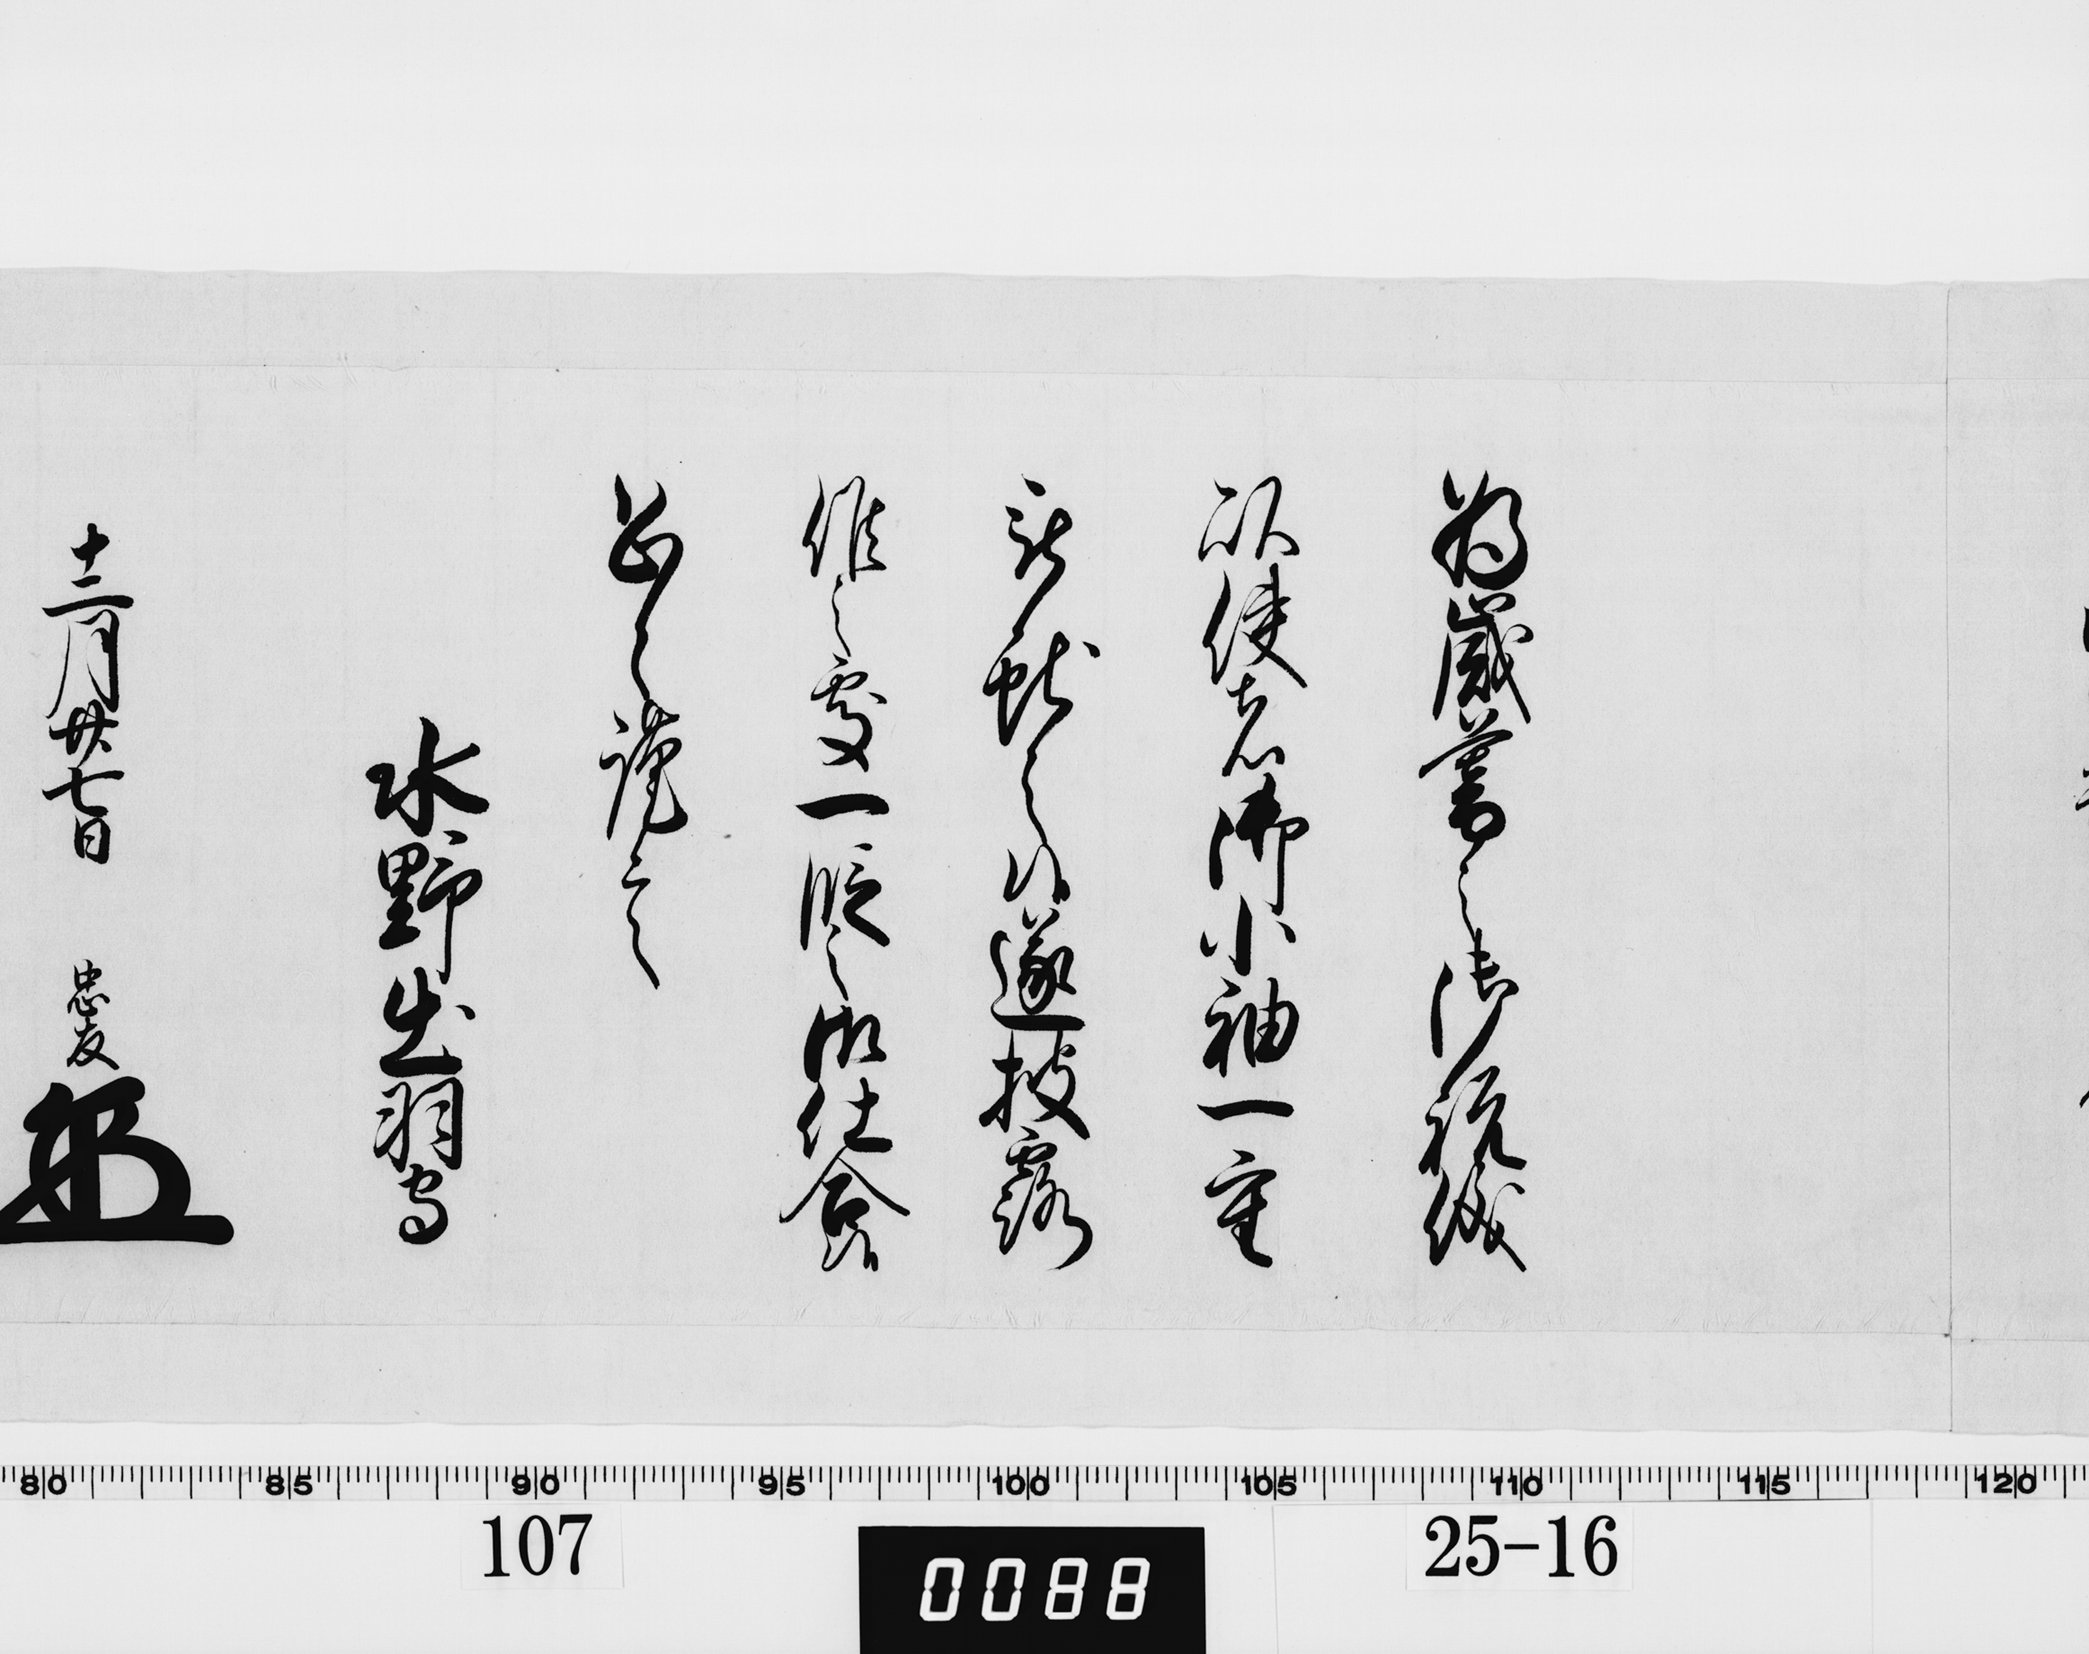 為歳暮之御祝儀
以使者御小袖一重
被献之候遂披露
候之處一段之御仕合候
恐々謹言
水野出羽守
十二月廿七日 忠友
80 85 90 95 100 105 110 115 120
107
0088
25-16